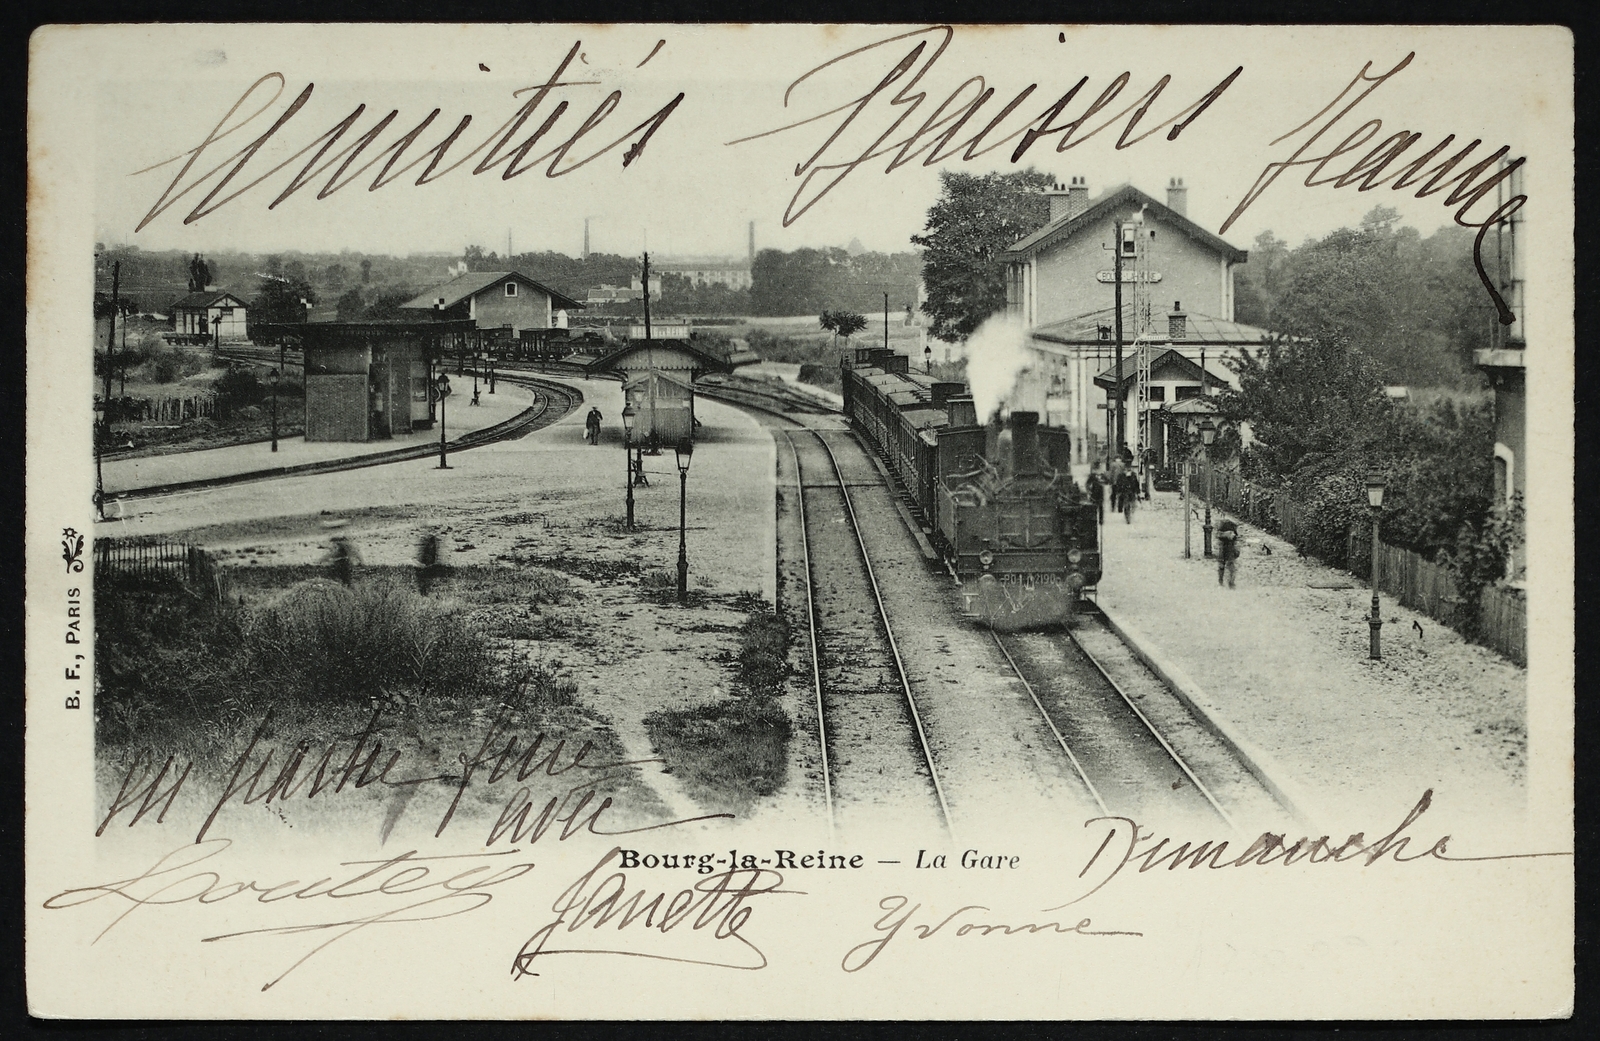 Amitiés Baisers Jeanne
B. F., PARIS
en partie fine
avec
Bourg-la-Reine — La Gare
Dimanche
Janette
Yvonne